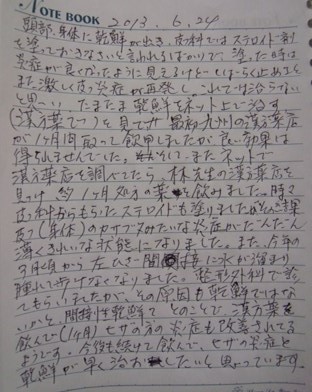 NOTE BOOK 2013.6.24
頭部、身体に乾癬が出き、皮科ではステロイド剤
を塗っておきなさいと言われるばかりで、塗った時は
炎症が良くなったように見えるけど、しばらく止めると
また激しく皮フ炎症が再発し、これでは治らない
と思い、たまたま乾癬をネット上で治す
(漢方薬で)を見て 最初九州の漢方薬店
が1ヶ月間取って飲用しましたが良い効果は
得られませんでした。 そして、またネットで
漢方薬店を調べてたら、林先生の漢方薬店を
見つけ 約1ヶ月処方の薬を飲みました。時々
皮フ科からもらったステロイドも塗りましたが
(身体)のカサブタみたいな炎症がだんだん
薄くきれいな状態になりました。また、今年の
3月頃から左ひざ 関節に水が溜まり
腫れて歩けなくなりました。整形外科で診
てもらいましたが、その原因も乾癬ではな
いかと、関節性乾癬 とのことで、漢方薬を
飲んで(1ヶ月)ヒザの方の炎症も改善されてる
ようです。今後も続けて飲んで、ヒザの炎症と
乾癬が早く治 したいと思っています。